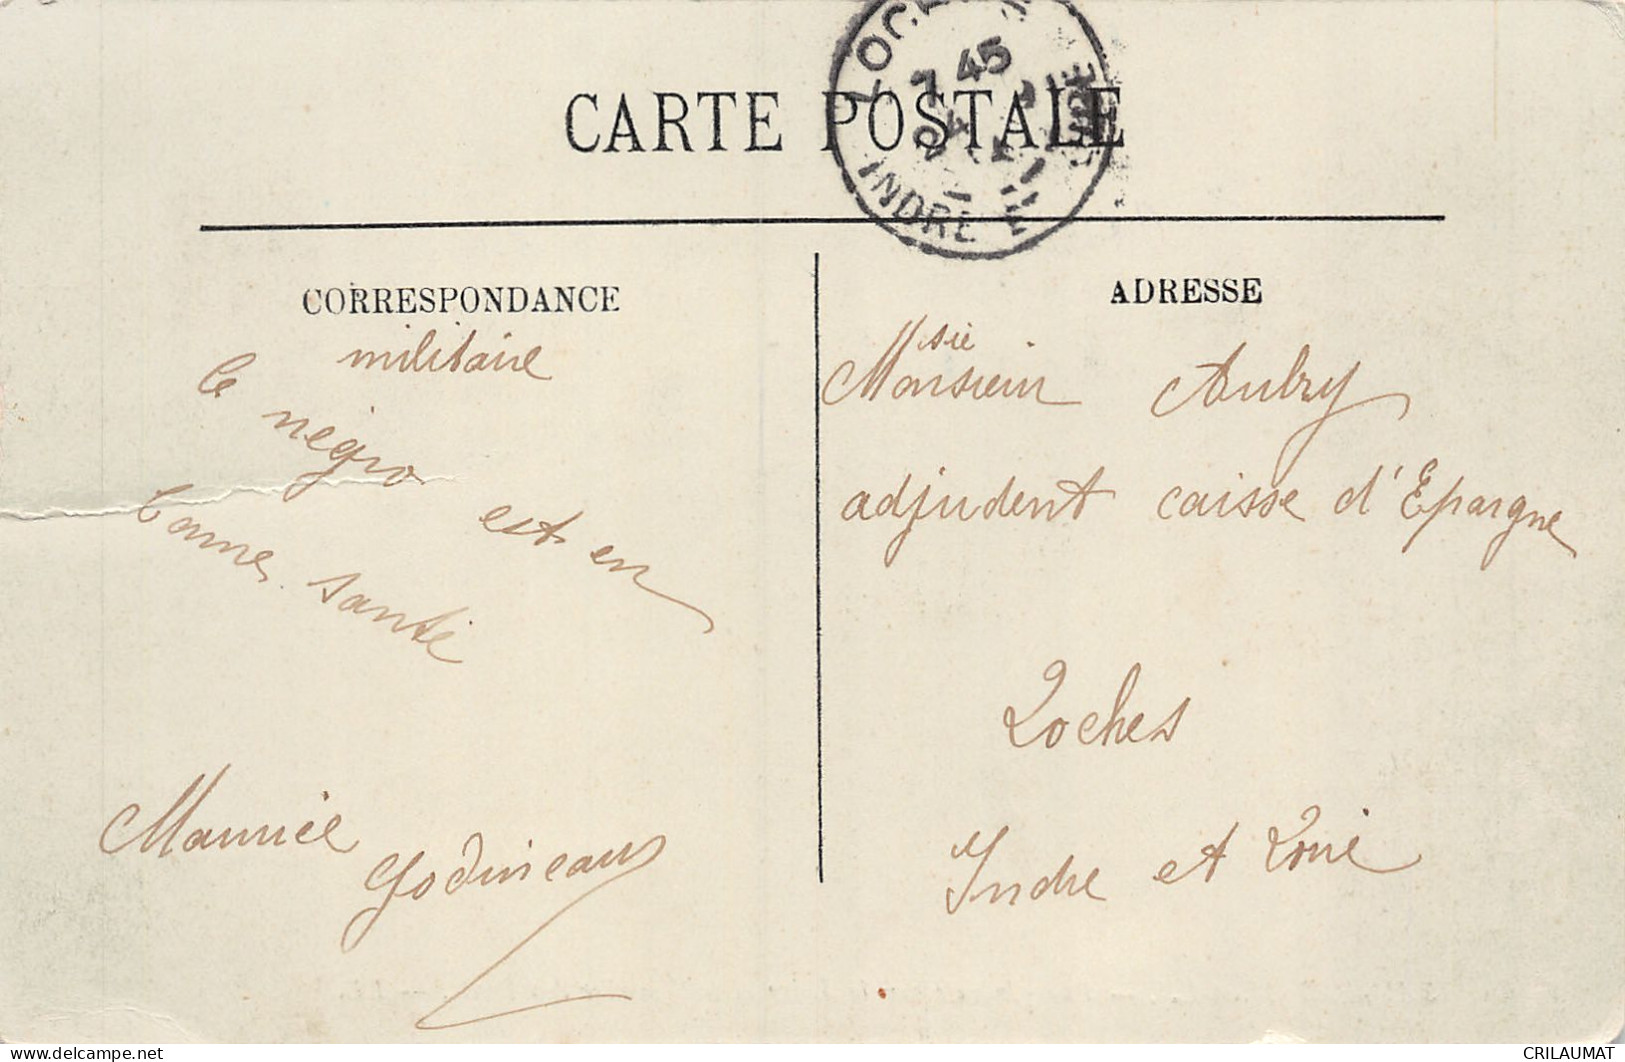 CARTE POSTALE
7 45
INDRE E
CORRESPONDANCE
militaire
le négro est en
bonne santé
Maurice
Godineau
ADRESSE
Monsieur Aubry
adjudent caisse d'Epargne
Loches
Indre et Loire
delcampe.net
CRILAUMAT